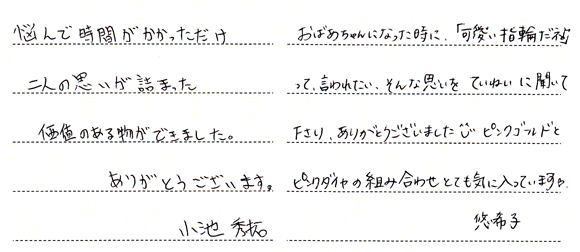 悩んで時間がかかっただけ
二人の思いが詰まった
価値のある物ができました。
ありがとうございます。
小池 秀拓
おばあちゃんになった時に、「可愛い指輪だね」
って、言われたい。そんな思いを ていねいに聞いて
下さり、ありがとうございました ピンクゴールドと
ピンクダイヤの組み合わせとても気に入っています。
悠希子